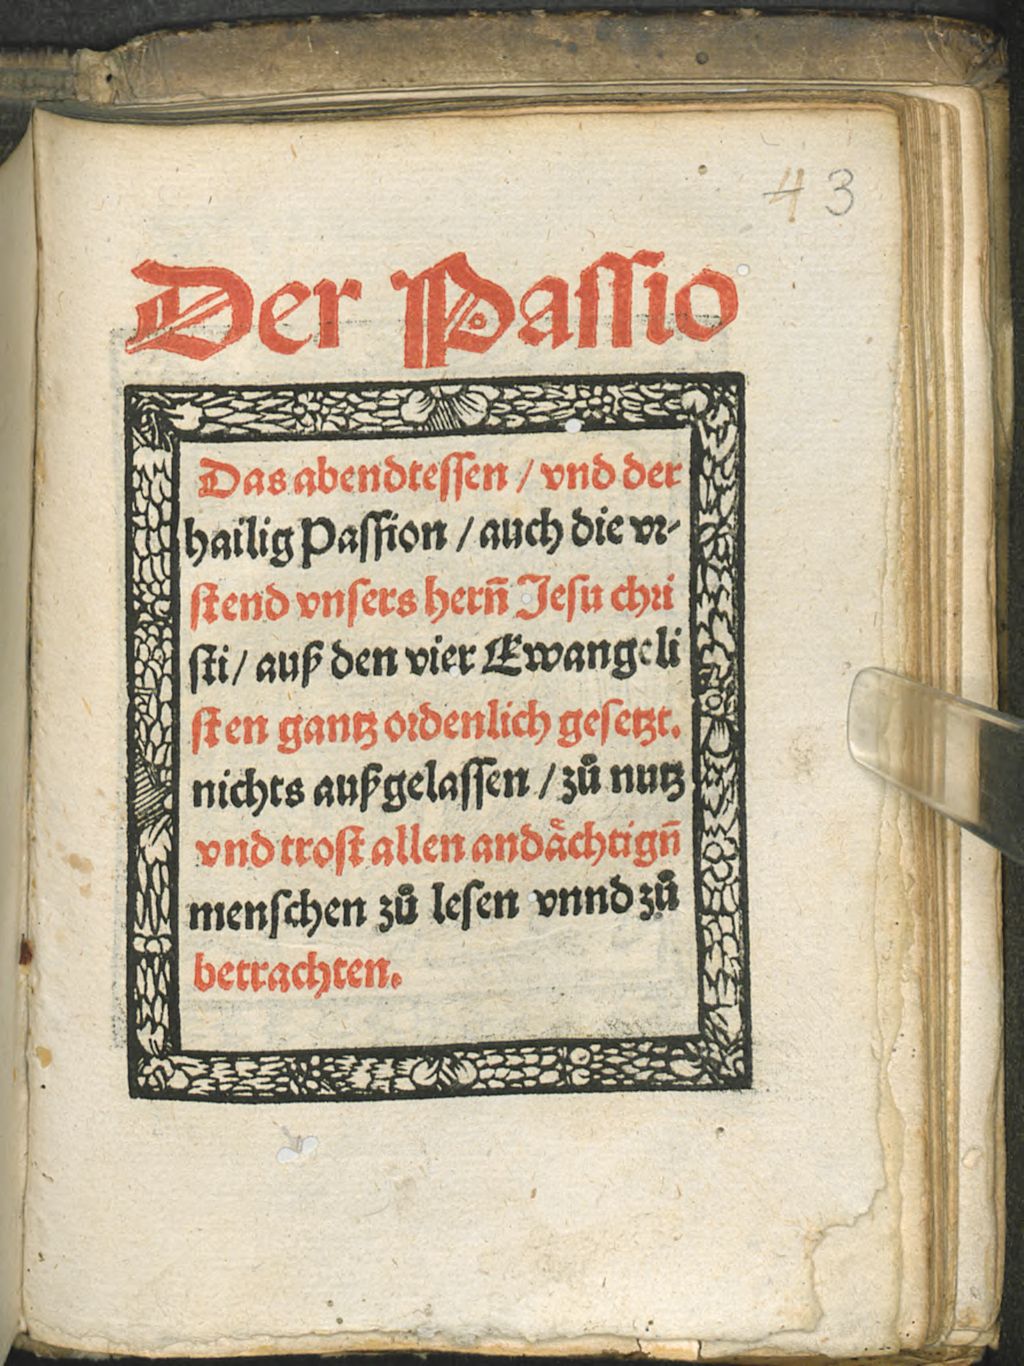 43
Der Passio
Das abendtessen / vnd der
hailig Passion / auch die vr-
stend vnsers hern̄ Jesu chri
sti / auß den vier Ewangeli
sten gantz ordenlich gesetzt.
nichts außgelassen / zů nutz
vnd trost allen andaͤchtign̄
menschen zů lesen vnnd zů
betrachten.